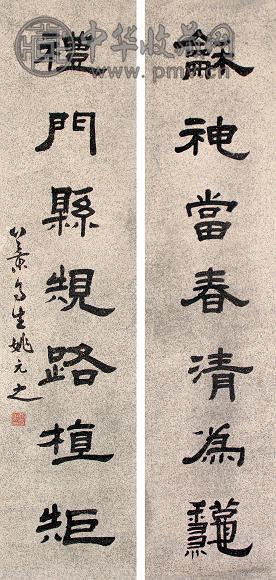 中华收藏网
龢神當春清為龝
禮門縣規路植矩
竹葉亭生姚元之